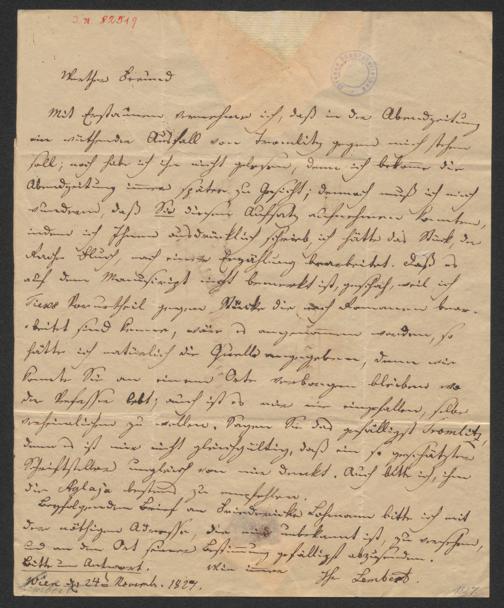 I.N. 82519
Werther Freund
Mit Erstaunen vernehme ich, daß in der Abendzeitung
ein wüthender Ausfall von Tromlitz gegen mich stehen
soll; noch habe ich ihn nicht gelesen, denn ich bekomme die
Abendzeitung immer später zu Gesicht; dennoch muß ich mich
wundern, daß Sie diesen Aufsatz aufnehmen konnten,
indem ich Ihnen ausdrücklich schrieb, ich hätte das Stück, der
Rache Fluch, nach einer Erzählung bearbeitet. Daß es
auf dem Manuscript nicht bemerkt ist, geschah, weil ich
Vorurtheil gegen Stücke die nach Romanen bear-
beitet sind kenne, wäre es angenommen worden, so
hätte ich natürlich die Quelle angegeben, denn wie
konnte Sie an einem Orte verborgen bleiben wo
der Verfasser lebt; auch ist es mir nie eingefallen, selbe
verheimlichen zu wollen. Sagen Sie das gefälligst Tromlitz,
denn es ist mir nicht gleichgültig, daß ein so geschätzter
Schriftsteller ungleich von mir denkt. Auch bitte ich, ihm
die Aglaja bestens zu empfehlen.
Beyfolgenden Brief an Friederike Lohmann bitte ich mit
der nöthigen Adresse, die mir unbekannt ist, zu versehen,
und an den Ort seiner Bestimmung gefälligst abzusenden.
Bitte um Antwort. Wie immer
Ihr Lembert
Wien d. 24 Novemb. 1827.